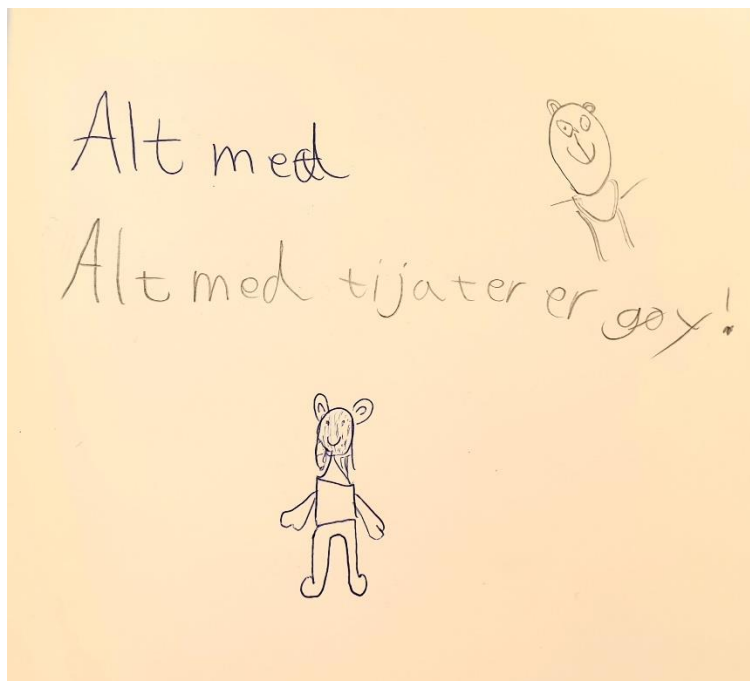 Alt med
Alt med tijater er gøy!